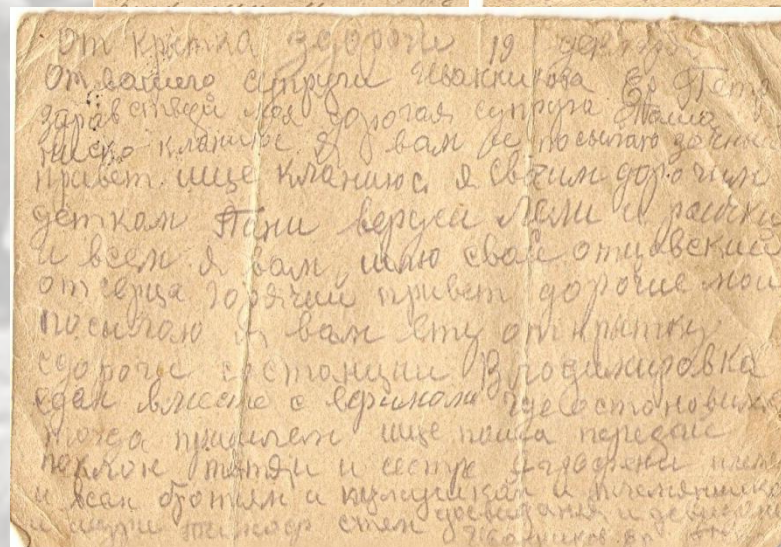 От крытка здороги 19 декабря
От вашего супруги Иванникова Ер Петр
здравствуй моя дорогая супруга Паша
ниско кланиюс я вам и посылаю заочный
привет ище кланиюс я своим дорогим
деткам Тани веруси Лели и раички
и всем я вам шлю свой отцовский
от серца горячий привет дорогие мои
посылаю я вам ету открытку
сдороги состанции Владимировка
едим вместе с ефимом где остановимс
тогда пришлем ище паша передай
поклон тяти и сестре
и всем братям и кумушкам и племянникам
и досвидания